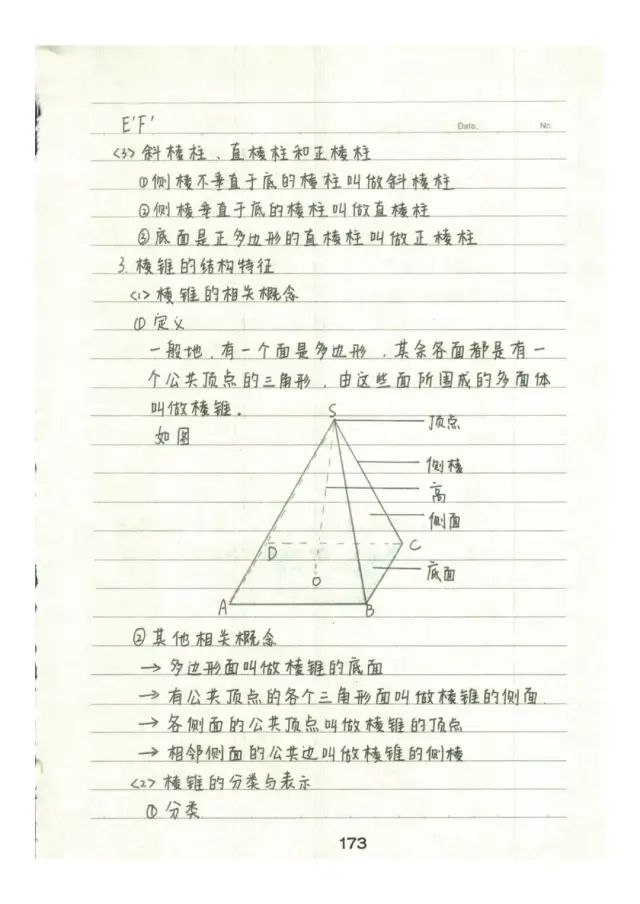 E'F'
Date. No.
<3> 斜棱柱、直棱柱和正棱柱
①侧棱不垂直于底的棱柱叫做斜棱柱
②侧棱垂直于底的棱柱叫做直棱柱
③底面是正多边形的直棱柱叫做正棱柱
3.棱锥的结构特征
<1> 棱锥的相关概念
① 定义
一般地,有一个面是多边形,其余各面都是有一
个公共顶点的三角形,由这些面所围成的多面体
叫做棱锥.
如图
S
顶点
侧棱
高
侧面
D
C
底面
O
A
B
②其他相关概念
→ 多边形面叫做棱锥的底面
→ 有公共顶点的各个三角形面叫做棱锥的侧面
→ 各侧面的公共顶点叫做棱锥的顶点
→ 相邻侧面的公共边叫做棱锥的侧棱
<2> 棱锥的分类与表示
① 分类
173